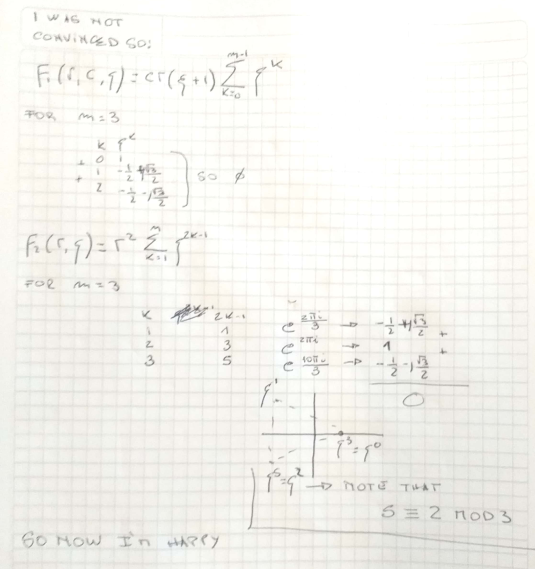 I WAS NOT
CONVINCED SO:
F₁(r, c, ξ) = cr(ξ+1) ∑_{k=0}^{m-1} ξ^k
FOR m = 3
k ξ^k
+ 0 1
+ 1 -1/2 + i√3/2
2 -1/2 - i√3/2
SO ∅
F₂(r, ξ) = r² ∑_{k=1}^{m} ξ^{2k-1}
FOR m = 3
k 2k-1
1 1 e^{2πi/3} → -1/2 + i√3/2 +
2 3 e^{2πi} → 1 +
3 5 e^{10πi/3} → -1/2 - i√3/2
0
ξ¹
ξ³ = ξ⁰
ξ⁵ = ξ² → NOTE THAT
5 ≡ 2 MOD 3
SO NOW I'M HAPPY